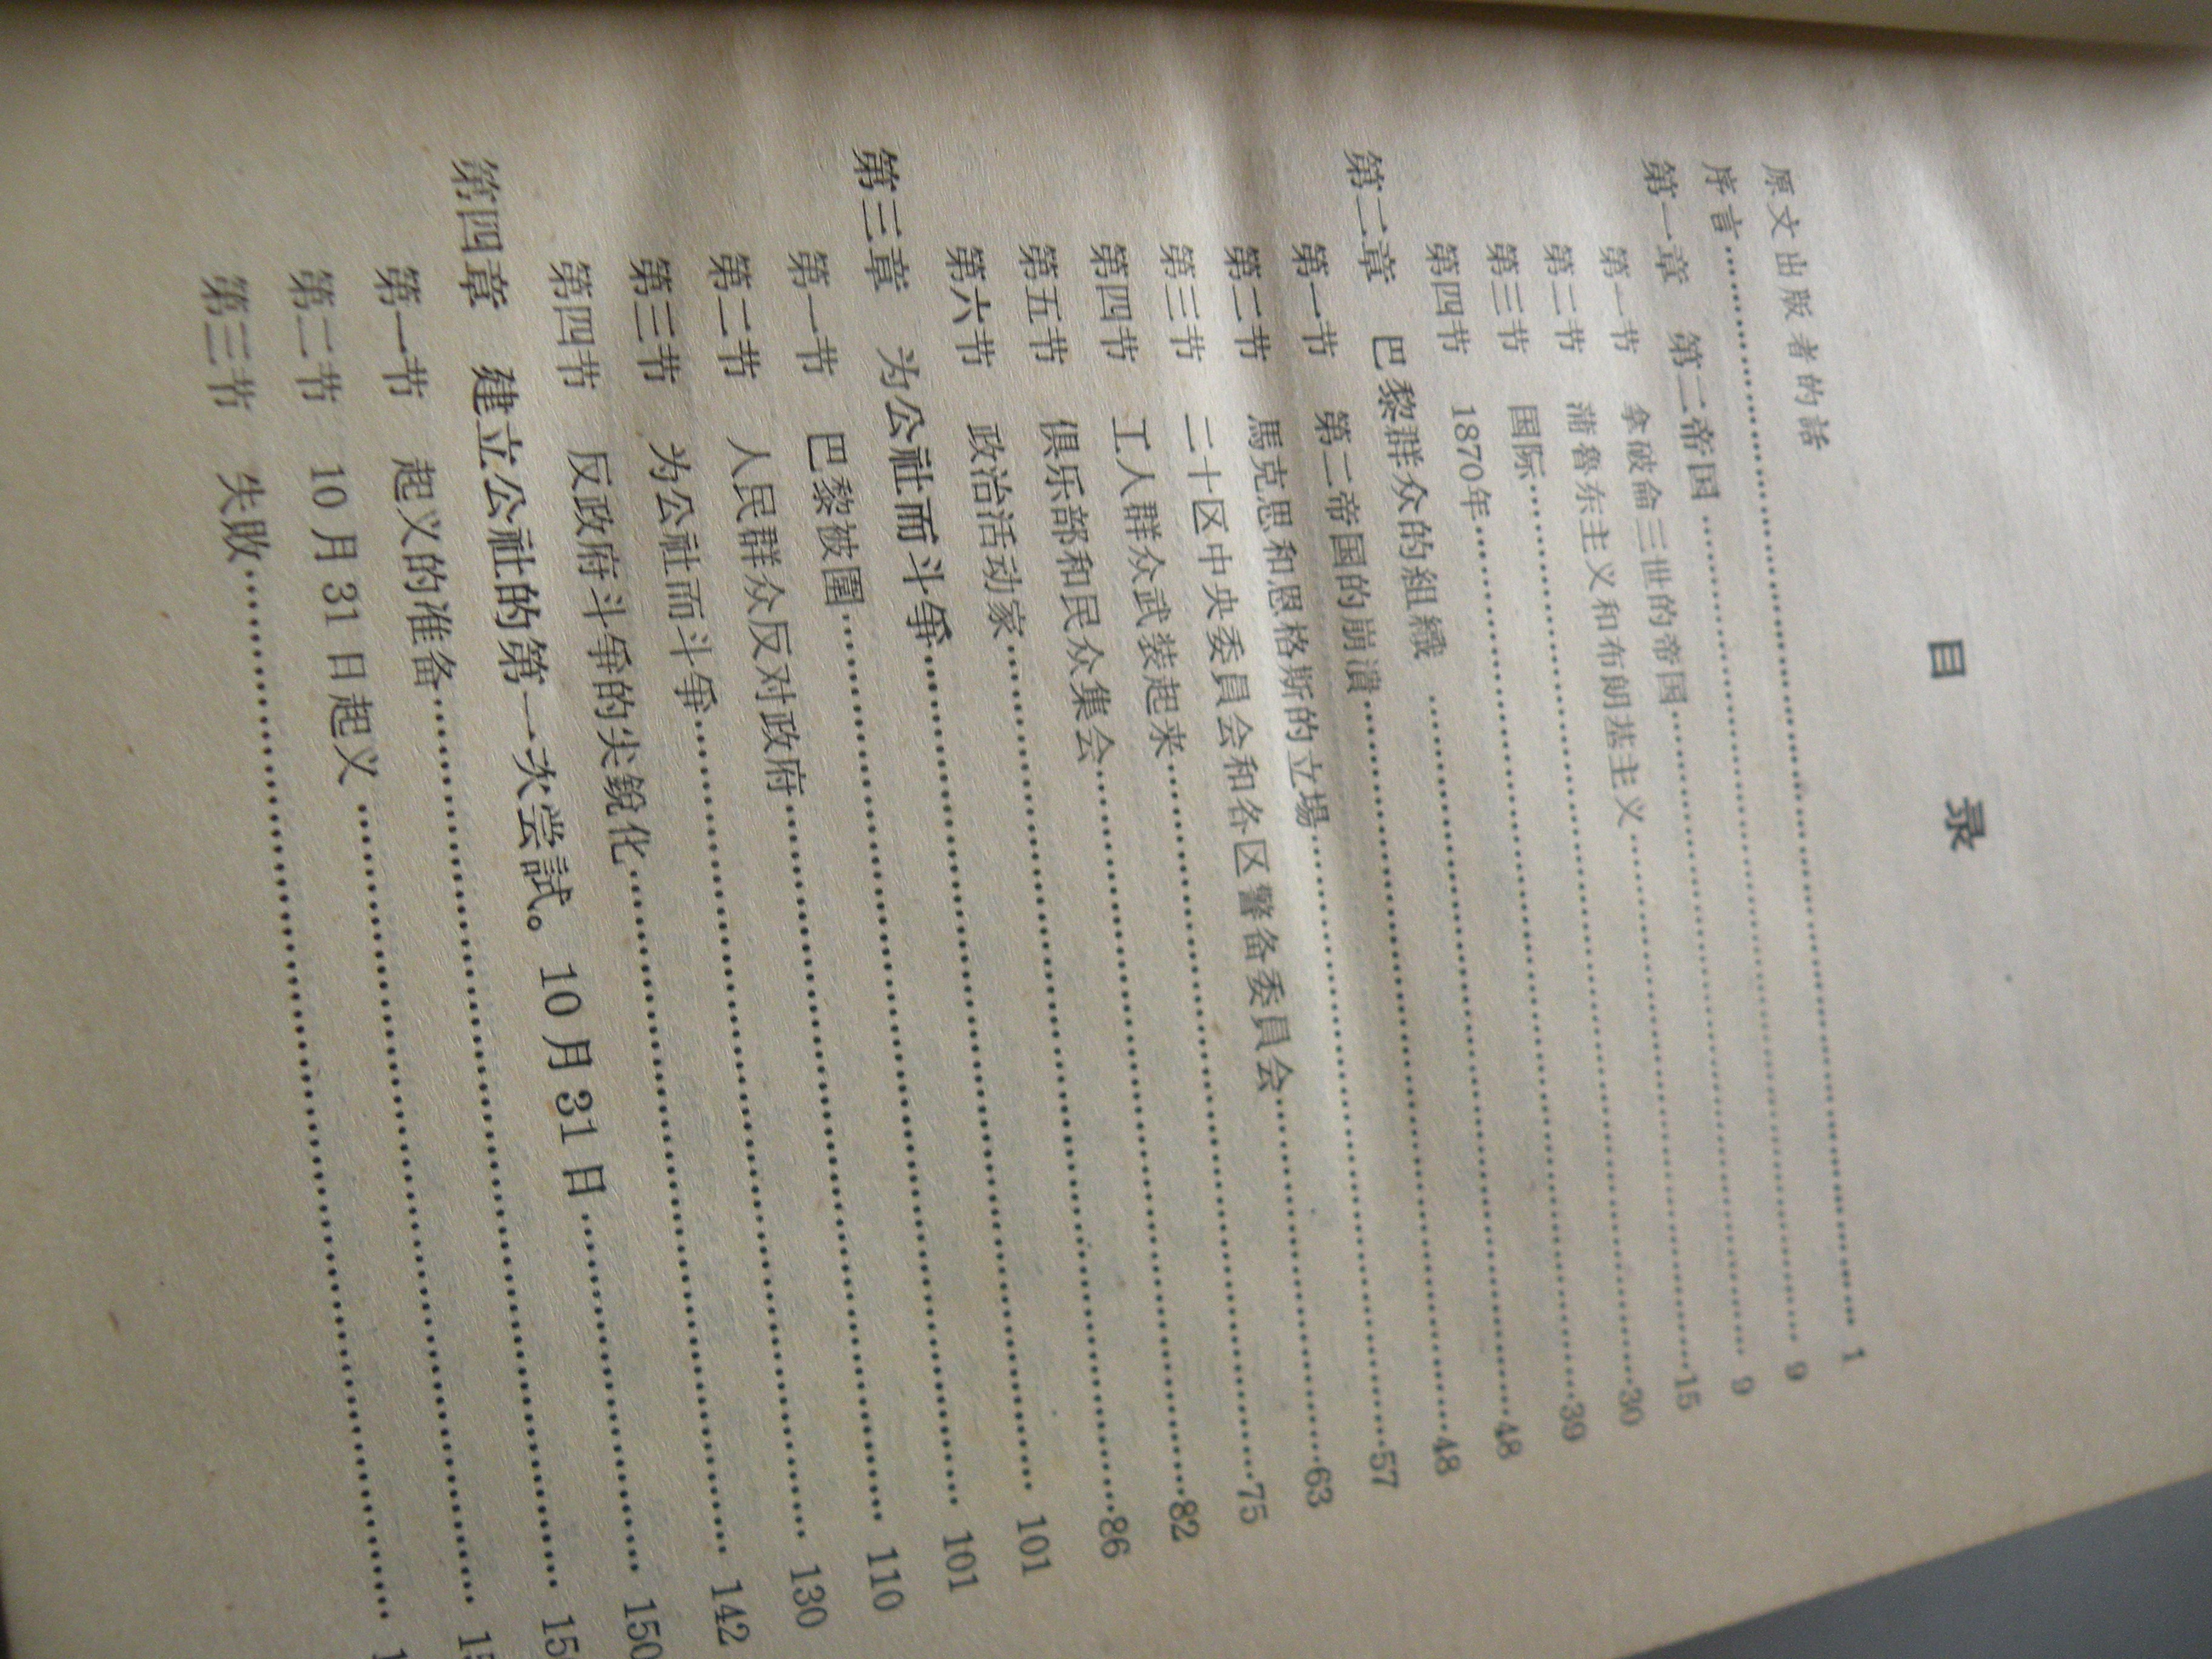 目 录
原文出版者的話
序言…………………………………………………… 1
第一章 第二帝国…………………………………………………… 9
第一节 拿破侖三世的帝国…………………………………………………… 9
第二节 蒲魯东主义和布朗基主义……………………………………………………15
第三节 国际……………………………………………………30
第四节 1870年……………………………………………………39
第二章 巴黎群众的組織……………………………………………………48
第一节 第二帝国的崩潰……………………………………………………48
第二节 馬克思和恩格斯的立場……………………………………………………57
第三节 二十区中央委員会和各区警备委員会……………………………………………………63
第四节 工人群众武装起来……………………………………………………75
第五节 俱乐部和民众集会……………………………………………………82
第六节 政治活动家……………………………………………………86
第三章 为公社而斗爭…………………………………………………… 101
第一节 巴黎被圍…………………………………………………… 101
第二节 人民群众反对政府…………………………………………………… 110
第三节 为公社而斗爭…………………………………………………… 130
第四节 反政府斗爭的尖銳化…………………………………………………… 142
第四章 建立公社的第一次尝試。10月31日…………………………………………………… 150
第一节 起义的准备…………………………………………………… 15
第二节 10月31日起义…………………………………………………… 1
第三节 失敗…………………………………………………… 1